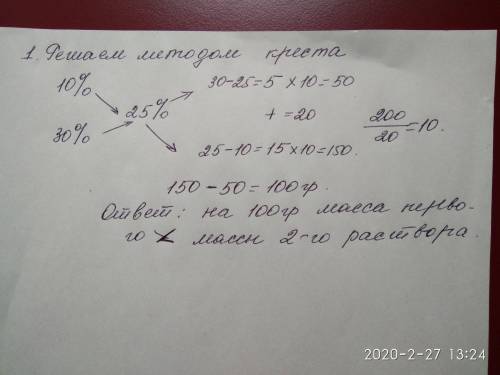 1. Решаем методом креста
10% 30-25=5 ×10=50
25% + =20 200/20=10.
30%
25-10=15×10=150.
150-50=100гр.
Ответ: на 100гр масса перво-
го < массы 2-го раствора.
2020-2-27 13:24